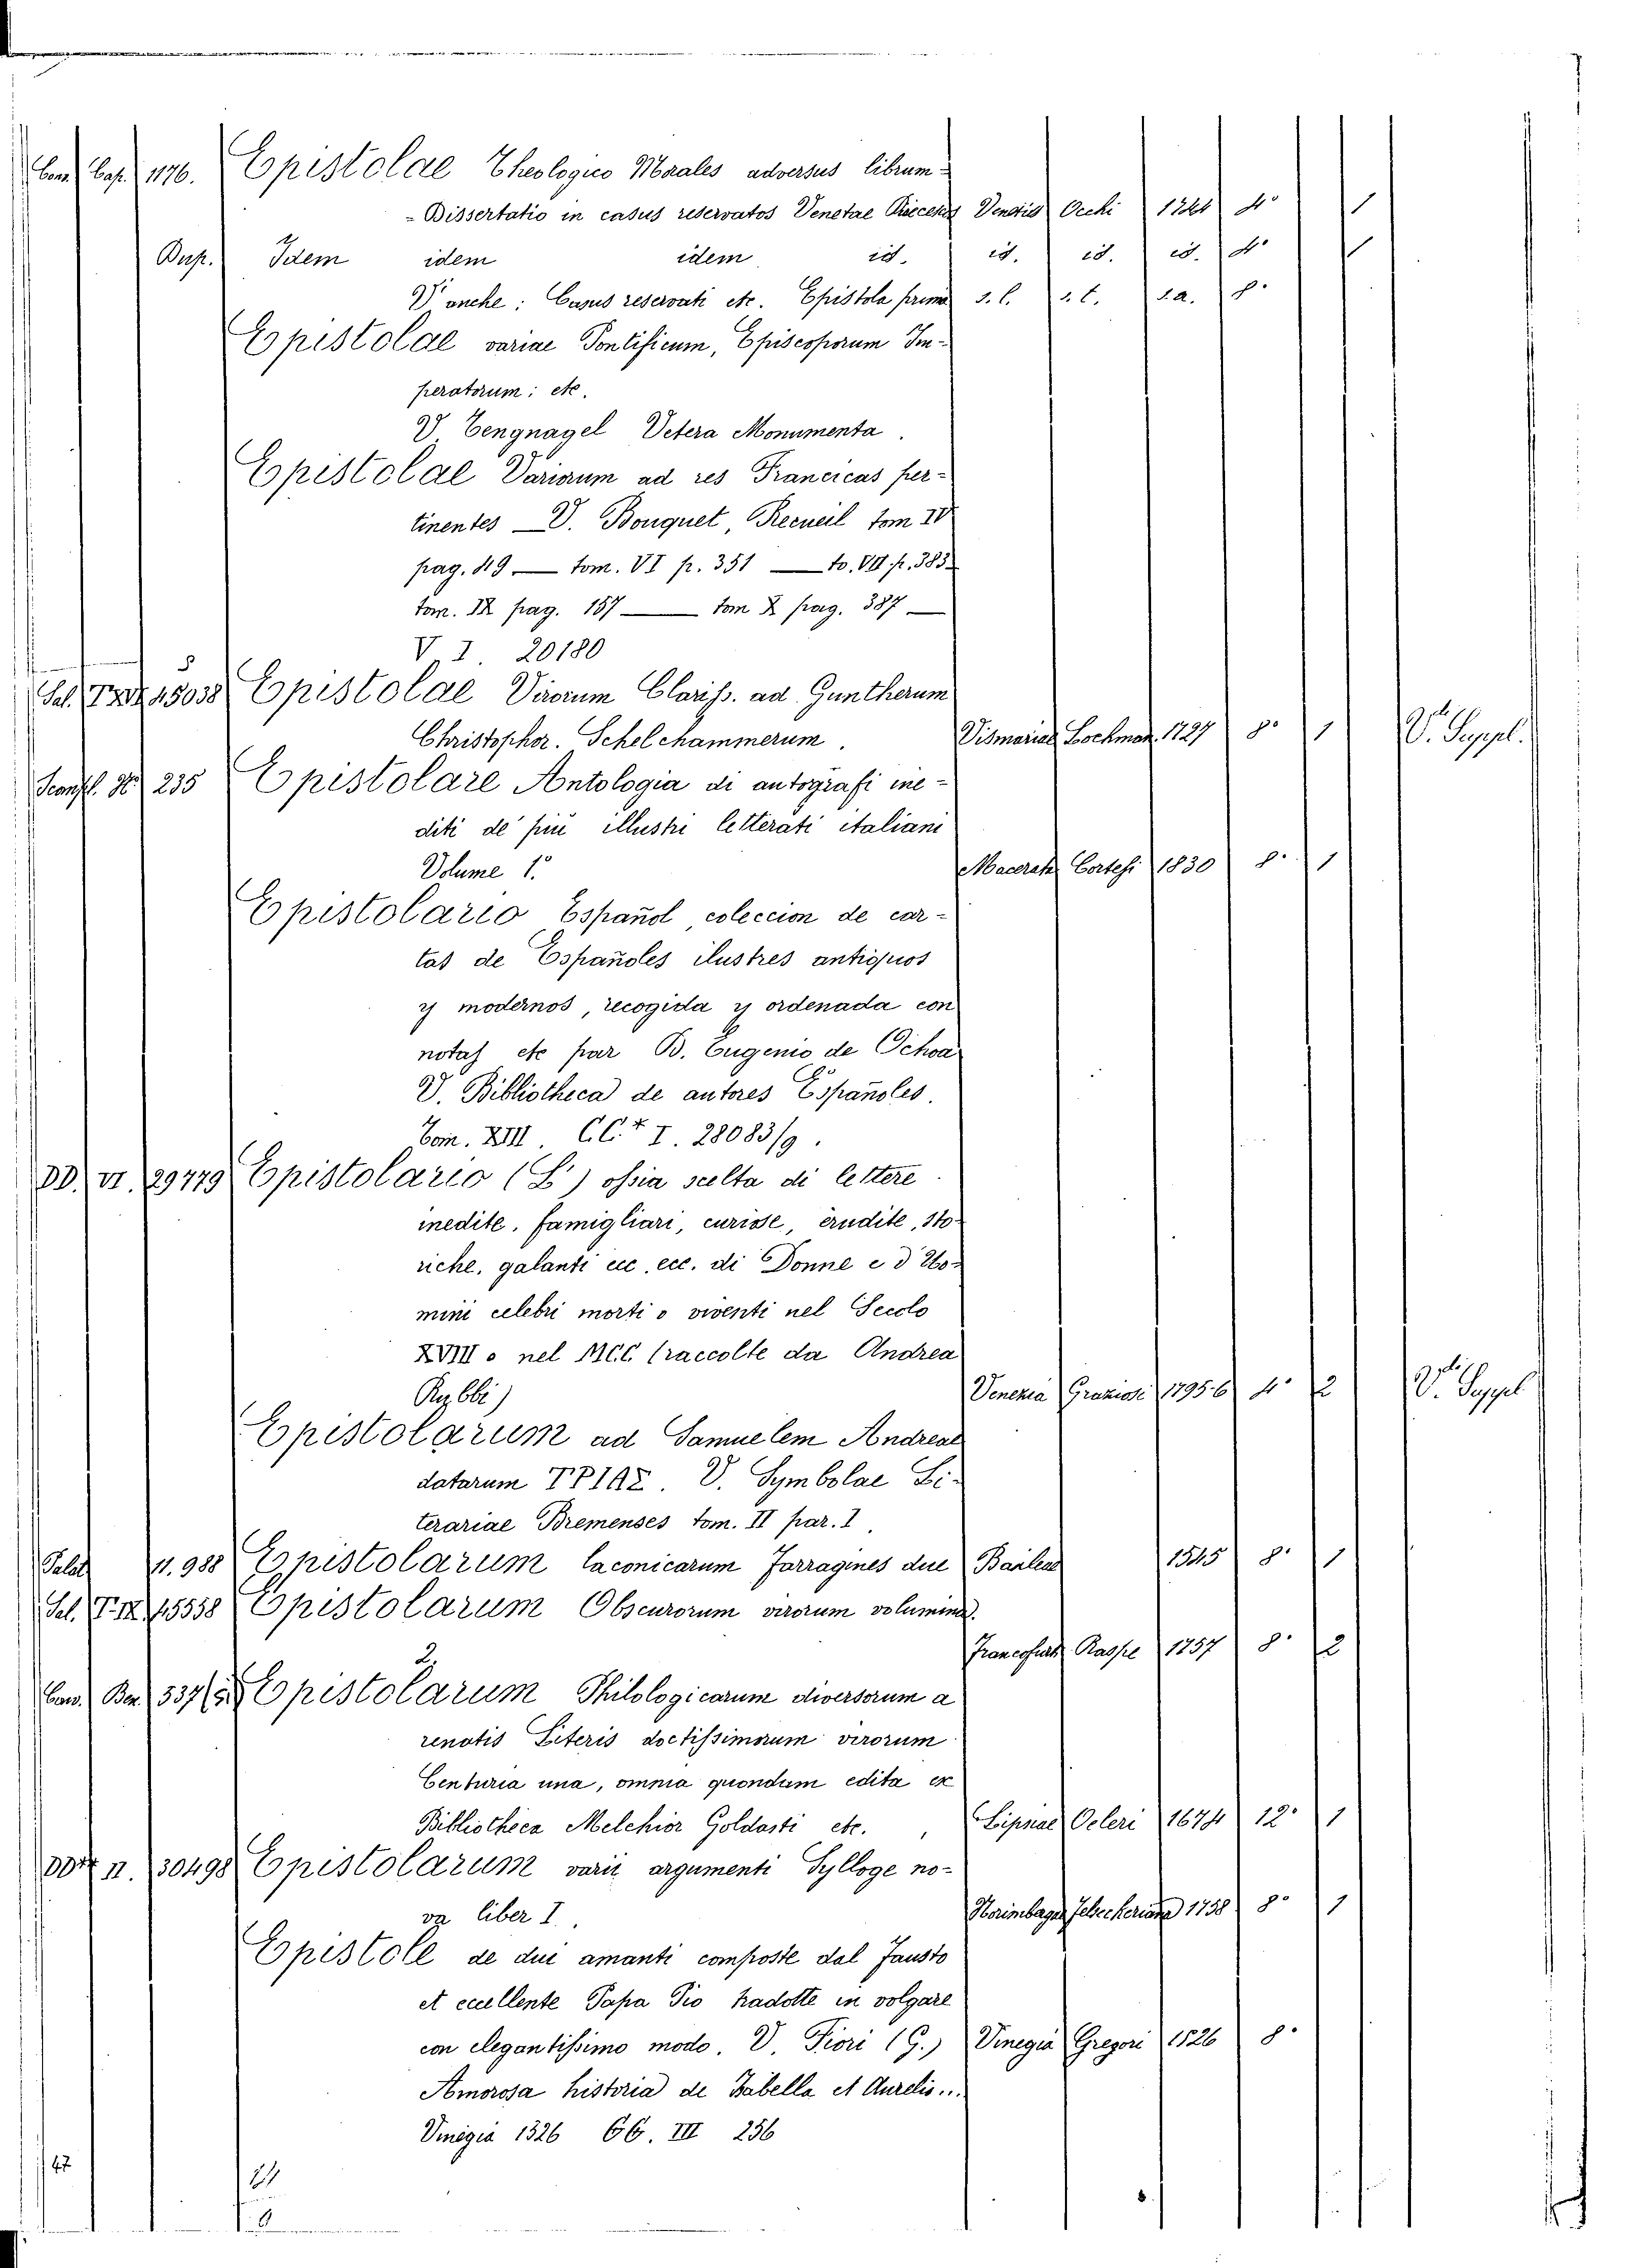 Conv. Cap. 1176. Epistolae Theologico Morales adversus librum-
-Dissertatio in casus reservatos Venetae Diecesis Venetiis Occhi 4° 1
Dup. Idem idem idem id. id. id. id. 4° 1
V. anche: Casus reservati etc. Epistola prima s. l. s. t. s. a. 8°
Epistolae variae Pontificum, Episcoporum Im-
peratorum; etc.
V. Tengnagel Vetera Monumenta.
Epistolae Variorum ad res Francicas per-
tinentes — V. Bouquet, Recueil tom IV
pag. 49 — tom. VI p. 351 — to. VII p. 383
tom. IX pag. 157 — tom X pag. 387 —
V. I. 20180
Sal. 45038 Epistolae Virorum Clariss. ad Guntherum
Christophor. Schelchammerum. Vismariae Lochman. 1727 8° 1 V. Suppl.
235 Epistolare Antologia di autografi ine-
diti de' più illustri letterati italiani
Volume 1.° Macerata Cortesi 1830 8° 1
Epistolario Español, coleccion de car-
tas de Españoles ilustres antiguos
y modernos, recogida y ordenada con
notas etc par D. Eugenio de Ochoa
V. Bibliotheca de autores Españoles.
Tom. XIII. CC.* I. 28083/9.
DD. VI. 29779 Epistolario (L') ossia scelta di lettere
inedite, famigliari, curiose, erudite, sto-
riche, galanti ecc. ecc. di Donne e d'Uo-
mini celebri morti o viventi nel Secolo
XVIII o nel MCC (raccolte da Andrea
Rubbi) Venezia Graziosi 1795-6 4° 2 V. Suppl
Epistolarum ad Samuelem Andreae
datarum ΤΡΙΑΣ. V. Symbolae Li-
terariae Bremenses tom. II par. I.
Palat. 11.988 Epistolarum laconicarum Farragines due Basileae 1545 8° 1
Sal. T. IX. 45558 Epistolarum Obscurorum virorum volumina
2. Francofurti Raspe 1757 8° 2
Conv. 537 Epistolarum Philologicarum diversorum a
renatis Literis doctissimorum virorum
Centuria una, omnia quondam edita ex
Bibliotheca Melchior Goldasti etc. Lipsiae Oeleri 1674 12° 1
DD* II. 30498 Epistolarum varii argumenti Sylloge no-
va liber I. Norimbagae 1758 8° 1
Epistole de due amanti composte dal Fausto
et eccellente Papa Pio tradotte in volgare
con elegantissimo modo. V. Fiori (G.) Vinegia Gregori 1526 8°
Amorosa historia de Isabella et Aurelio...
Vinegia 1526 66. III 256
47
21